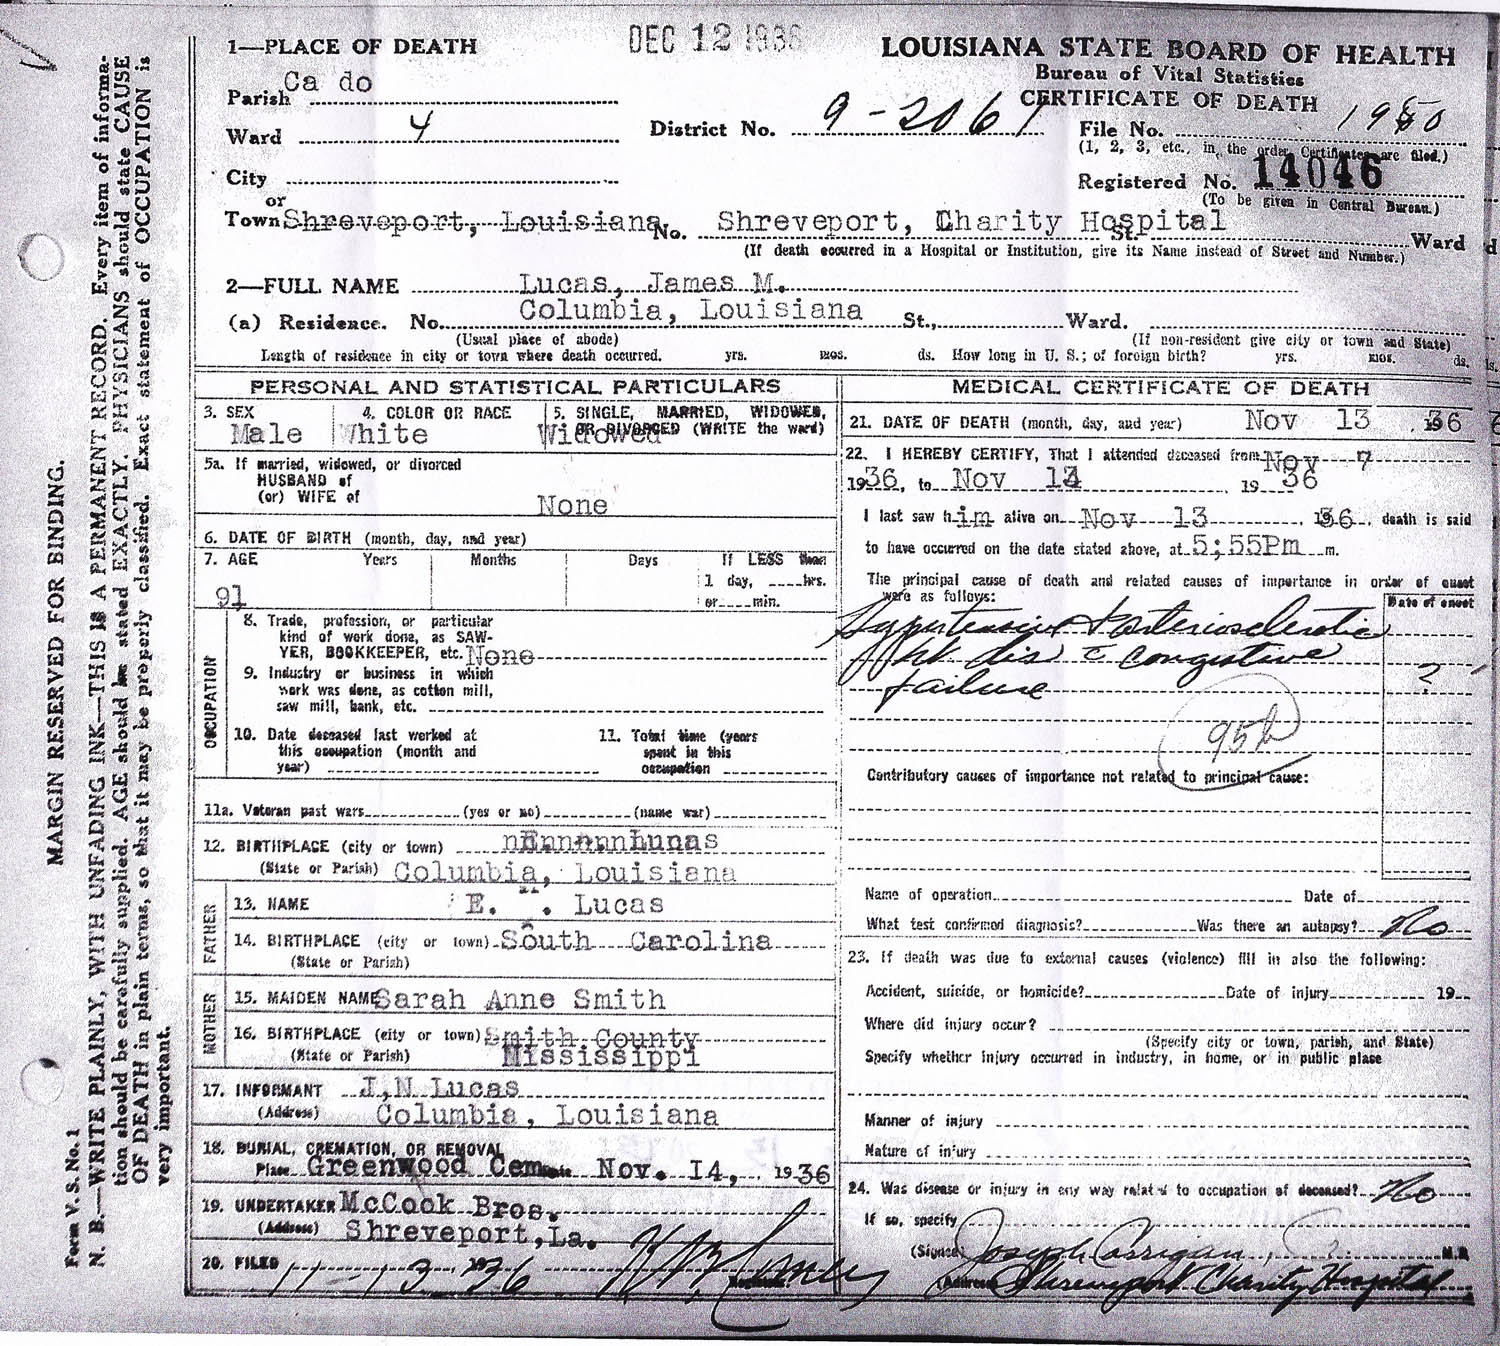 DEC 12 1936
LOUISIANA STATE BOARD OF HEALTH
Bureau of Vital Statistics
CERTIFICATE OF DEATH
1—PLACE OF DEATH
Parish Ca do
Ward 4
District No. 9-2061
File No. 1980
(1, 2, 3, etc., in the order Certificates are filed.)
City
or
Town Shreveport, Louisiana
Registered No. 14046
(To be given in Central Bureau.)
No. Shreveport, Charity Hospital St. Ward
(If death occurred in a Hospital or Institution, give its Name instead of Street and Number.)
2—FULL NAME Lucas, James M.
(a) Residence. No. Columbia, Louisiana St., Ward.
(Usual place of abode) (If non-resident give city or town and State)
Length of residence in city or town where death occurred. yrs. mos. ds. How long in U. S.; of foreign birth? yrs. mos. ds.
PERSONAL AND STATISTICAL PARTICULARS
3. SEX 4. COLOR OR RACE 5. SINGLE, MARRIED, WIDOWED,
OR DIVORCED (WRITE the word)
Male White Widowed
5a. If married, widowed, or divorced
HUSBAND of
(or) WIFE of None
6. DATE OF BIRTH (month, day, and year)
7. AGE Years Months Days If LESS than
1 day, hrs.
or min.
91
OCCUPATION
8. Trade, profession, or particular
kind of work done, as SAW-
YER, BOOKKEEPER, etc. None
9. Industry or business in which
work was done, as cotton mill,
saw mill, bank, etc.
10. Date deceased last worked at
this occupation (month and
year)
11. Total time (years
spent in this
occupation
11a. Veteran past wars (yes or no) (name war)
12. BIRTHPLACE (city or town)
(State or Parish) Columbia, Louisiana
FATHER
13. NAME E. . Lucas
14. BIRTHPLACE (city or town) South Carolina
(State or Parish)
MOTHER
15. MAIDEN NAME Sarah Anne Smith
16. BIRTHPLACE (city or town) Smith County
(State or Parish) Mississippi
17. INFORMANT J,N Lucas
(Address) Columbia, Louisiana
18. BURIAL, CREMATION, OR REMOVAL
Place Greenwood Cem Date Nov. 14, 1936
19. UNDERTAKER McCook Bros.
(Address) Shreveport, La.
20. FILED 11-13 1936
Registrar.
MEDICAL CERTIFICATE OF DEATH
21. DATE OF DEATH (month, day, and year) Nov 13 , 1936
22. I HEREBY CERTIFY, That I attended deceased from Nov 7
1936, to Nov 13 , 1936
I last saw him alive on Nov 13 , 1936, death is said
to have occurred on the date stated above, at 5;55Pm m.
The principal cause of death and related causes of importance in order of onset
were as follows:
Date of onset
Hypertensive & arteriosclerotic
ht dis c̄ congestive
failure
?
95b
Contributory causes of importance not related to principal cause:
Name of operation Date of
What test confirmed diagnosis? Was there an autopsy? No
23. If death was due to external causes (violence) fill in also the following:
Accident, suicide, or homicide? Date of injury 19
Where did injury occur?
(Specify city or town, parish, and State)
Specify whether injury occurred in industry, in home, or in public place
Manner of injury
Nature of injury
24. Was disease or injury in any way related to occupation of deceased? No
If so, specify
(Signed) Joseph Corrigan, M.D.
(Address) Shreveport Charity Hospital
MARGIN RESERVED FOR BINDING.
N. B.—WRITE PLAINLY, WITH UNFADING INK—THIS IS A PERMANENT RECORD. Every item of informa-
tion should be carefully supplied. AGE should be stated EXACTLY. PHYSICIANS should state CAUSE
OF DEATH in plain terms, so that it may be properly classified. Exact statement of OCCUPATION is
very important.
Form V. S. No. 1